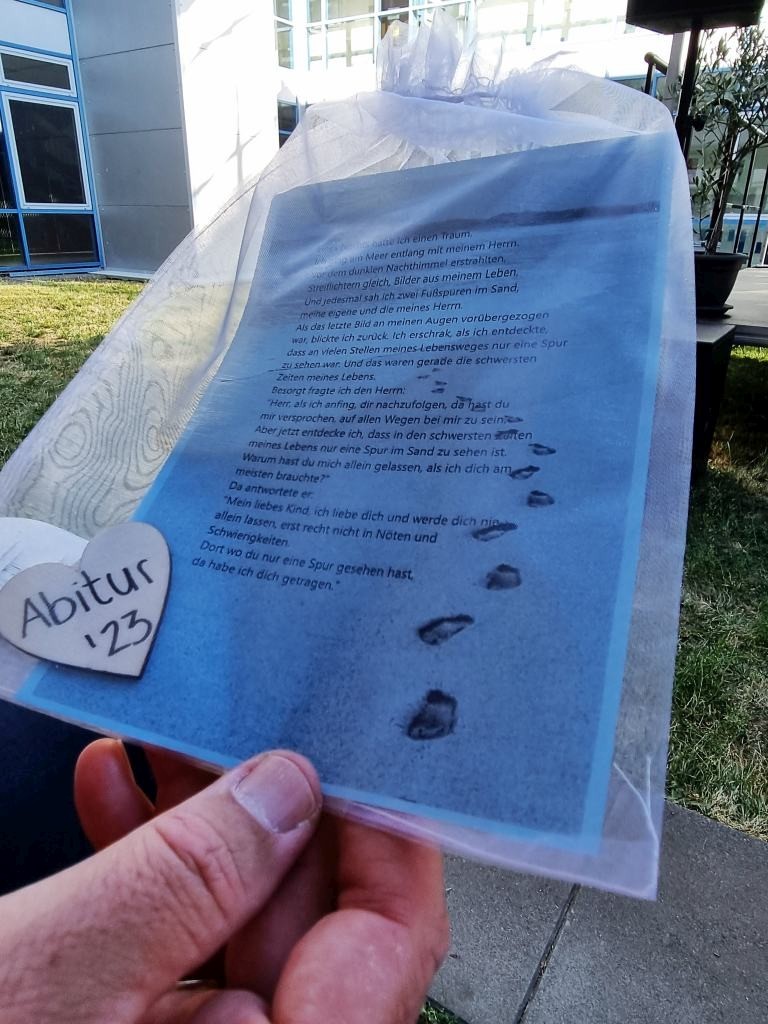 hatte ich einen Traum.
am Meer entlang mit meinem Herrn.
dem dunklen Nachthimmel erstrahlten,
Streiflichtern gleich, Bilder aus meinem Leben,
Und jedesmal sah ich zwei Fußspuren im Sand,
meine eigene und die meines Herrn.
Als das letzte Bild an meinen Augen vorübergezogen
war, blickte ich zurück. Ich erschrak, als ich entdeckte,
dass an vielen Stellen meines Lebensweges nur eine Spur
zu sehen war. Und das waren gerade die schwersten
Zeiten meines Lebens.
Besorgt fragte ich den Herrn:
"Herr, als ich anfing, dir nachzufolgen, da hast du
mir versprochen, auf allen Wegen bei mir zu sein.
Aber jetzt entdecke ich, dass in den schwersten Zeiten
meines Lebens nur eine Spur im Sand zu sehen ist.
Warum hast du mich allein gelassen, als ich dich am
meisten brauchte?"
Da antwortete er:
"Mein liebes Kind, ich liebe dich und werde dich nie
allein lassen, erst recht nicht in Nöten und
Schwierigkeiten.
Dort wo du nur eine Spur gesehen hast,
da habe ich dich getragen."
Abitur
'23